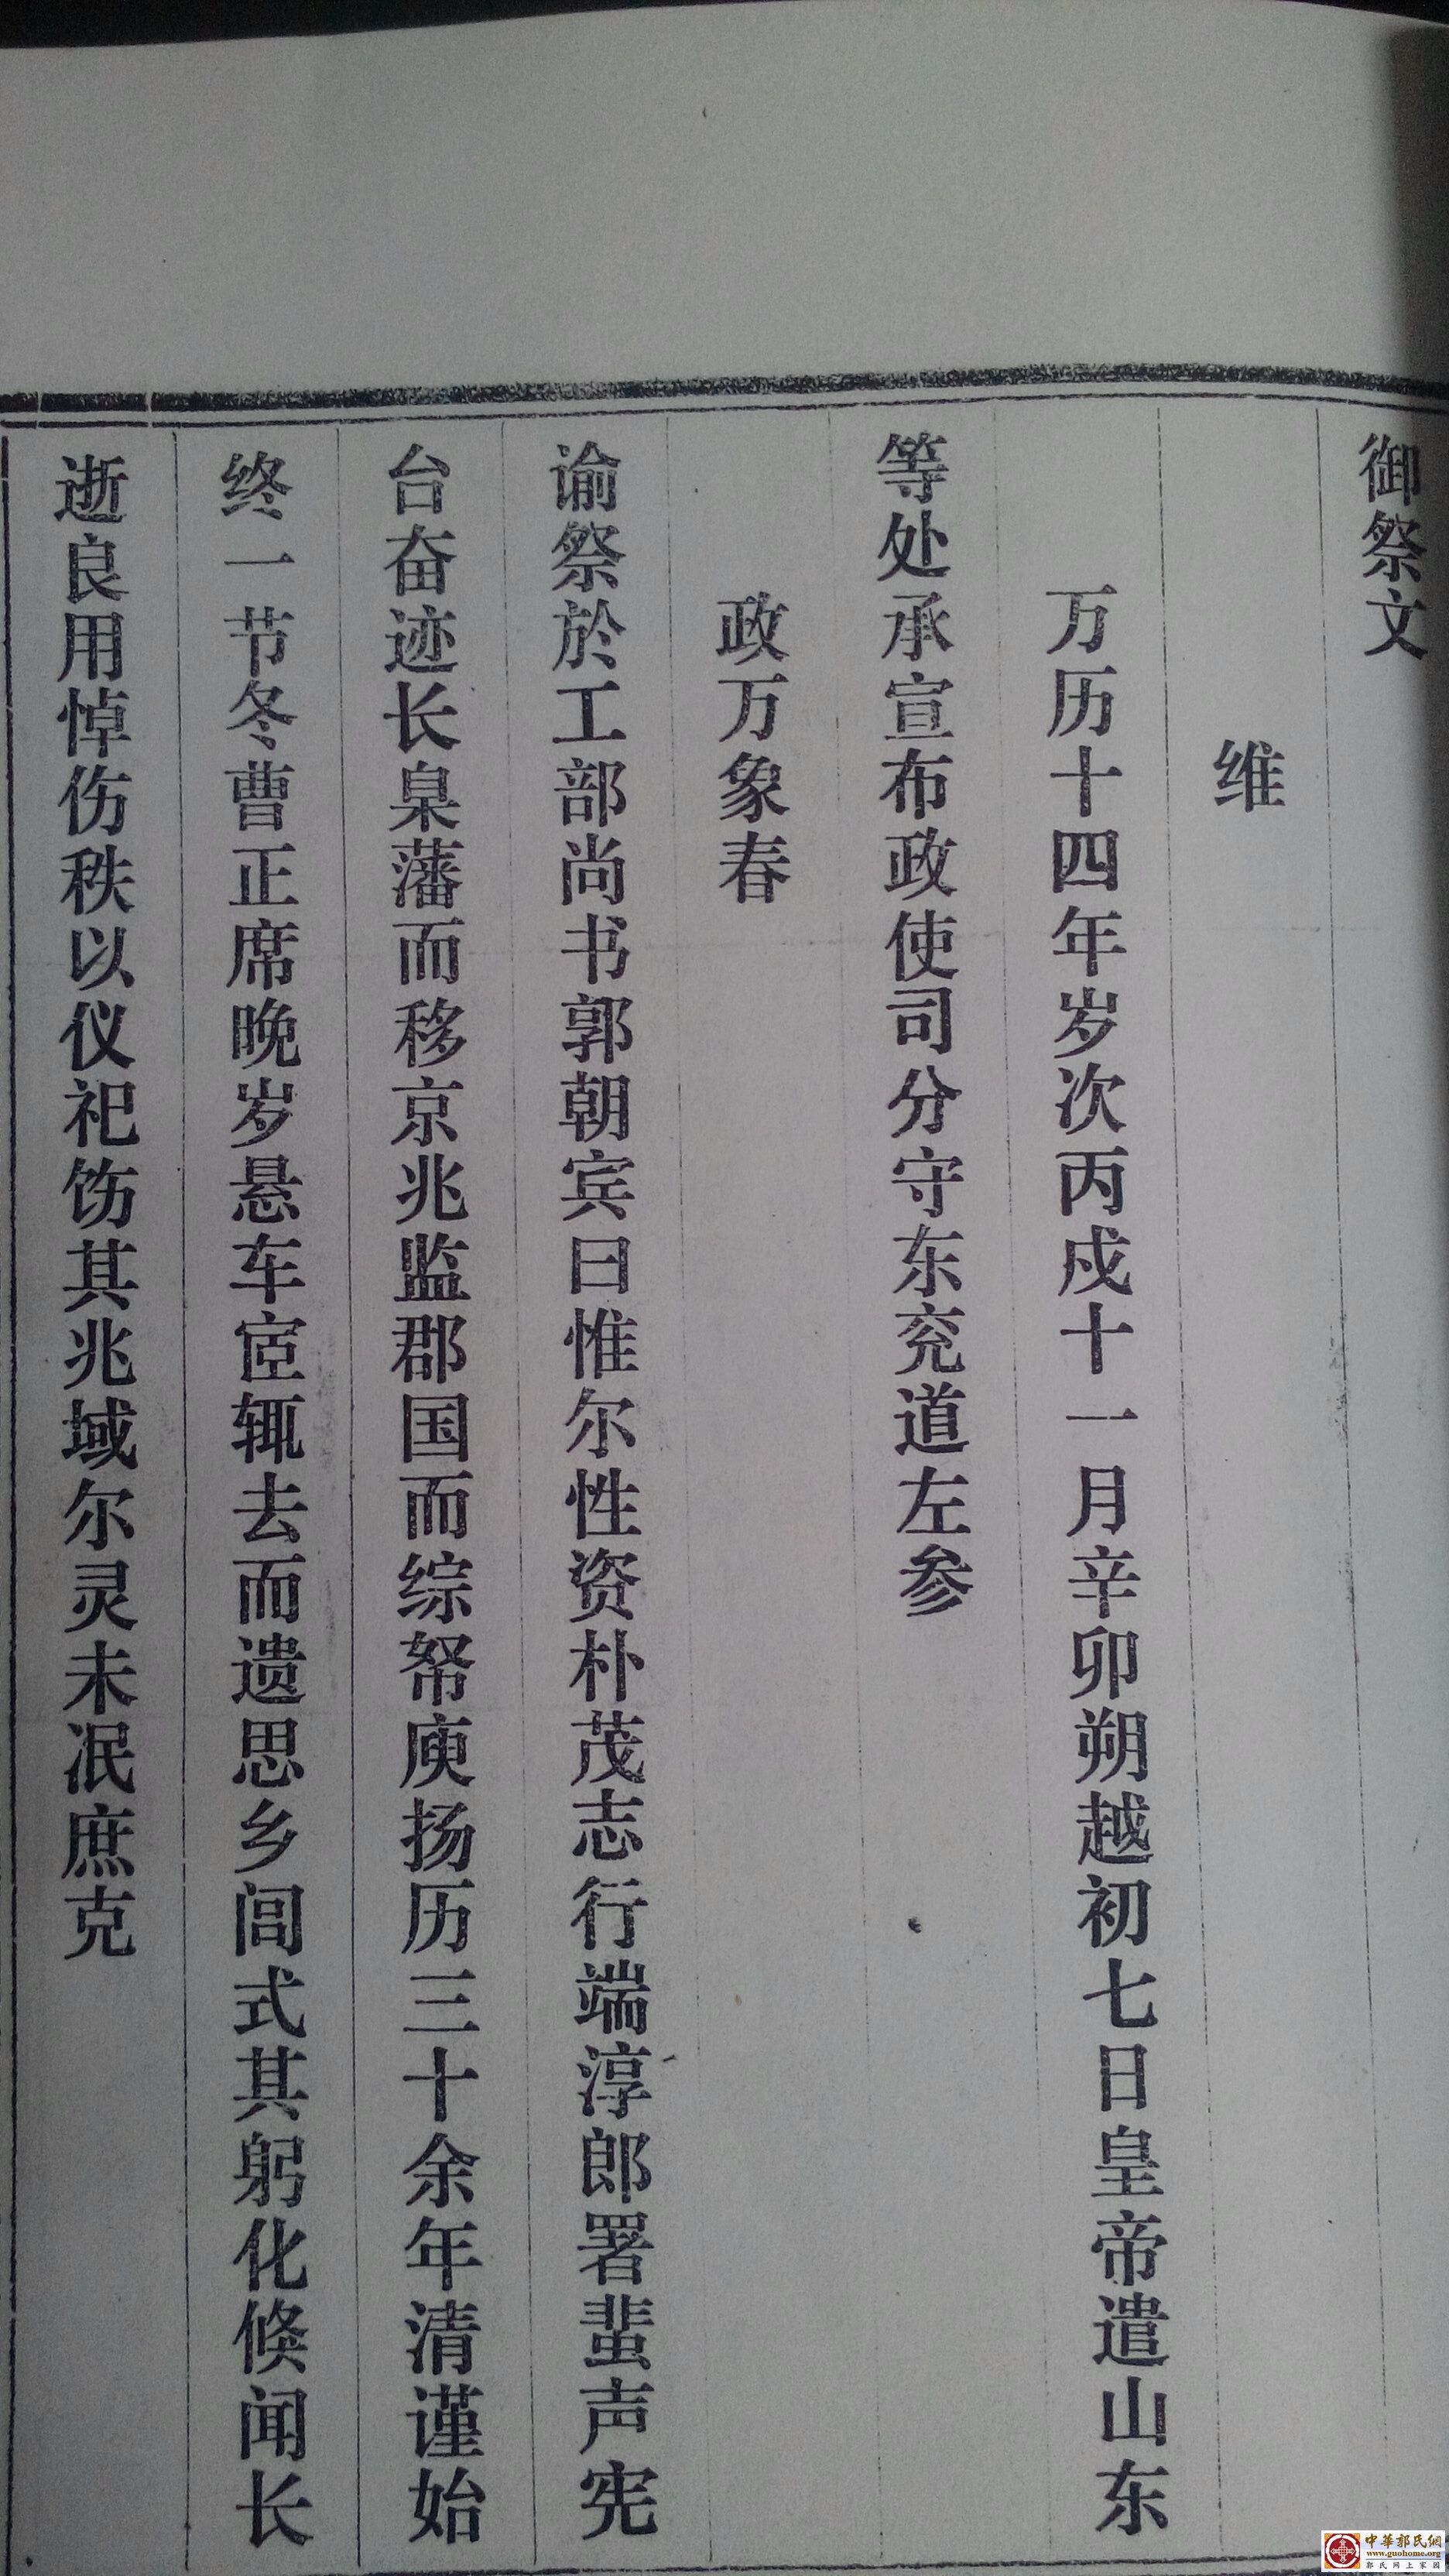 御祭文
维
万历十四年岁次丙戍十一月辛卯朔越初七日皇帝遣山东
等处承宣布政使司分守东兖道左参
政万象春
谕祭於工部尚书郭朝宾曰惟尔性资朴茂志行端淳郎署蜚声宪
台奋迹长臬藩而移京兆监郡国而综帑庾扬历三十余年清谨始
终一节冬曹正席晚岁悬车宦辄去而遗思乡闾式其躬化倏闻长
逝良用悼伤秩以仪祀饬其兆域尔灵未泯庶克
中華郭氏網
www.guohome.org
郭氏网上家园